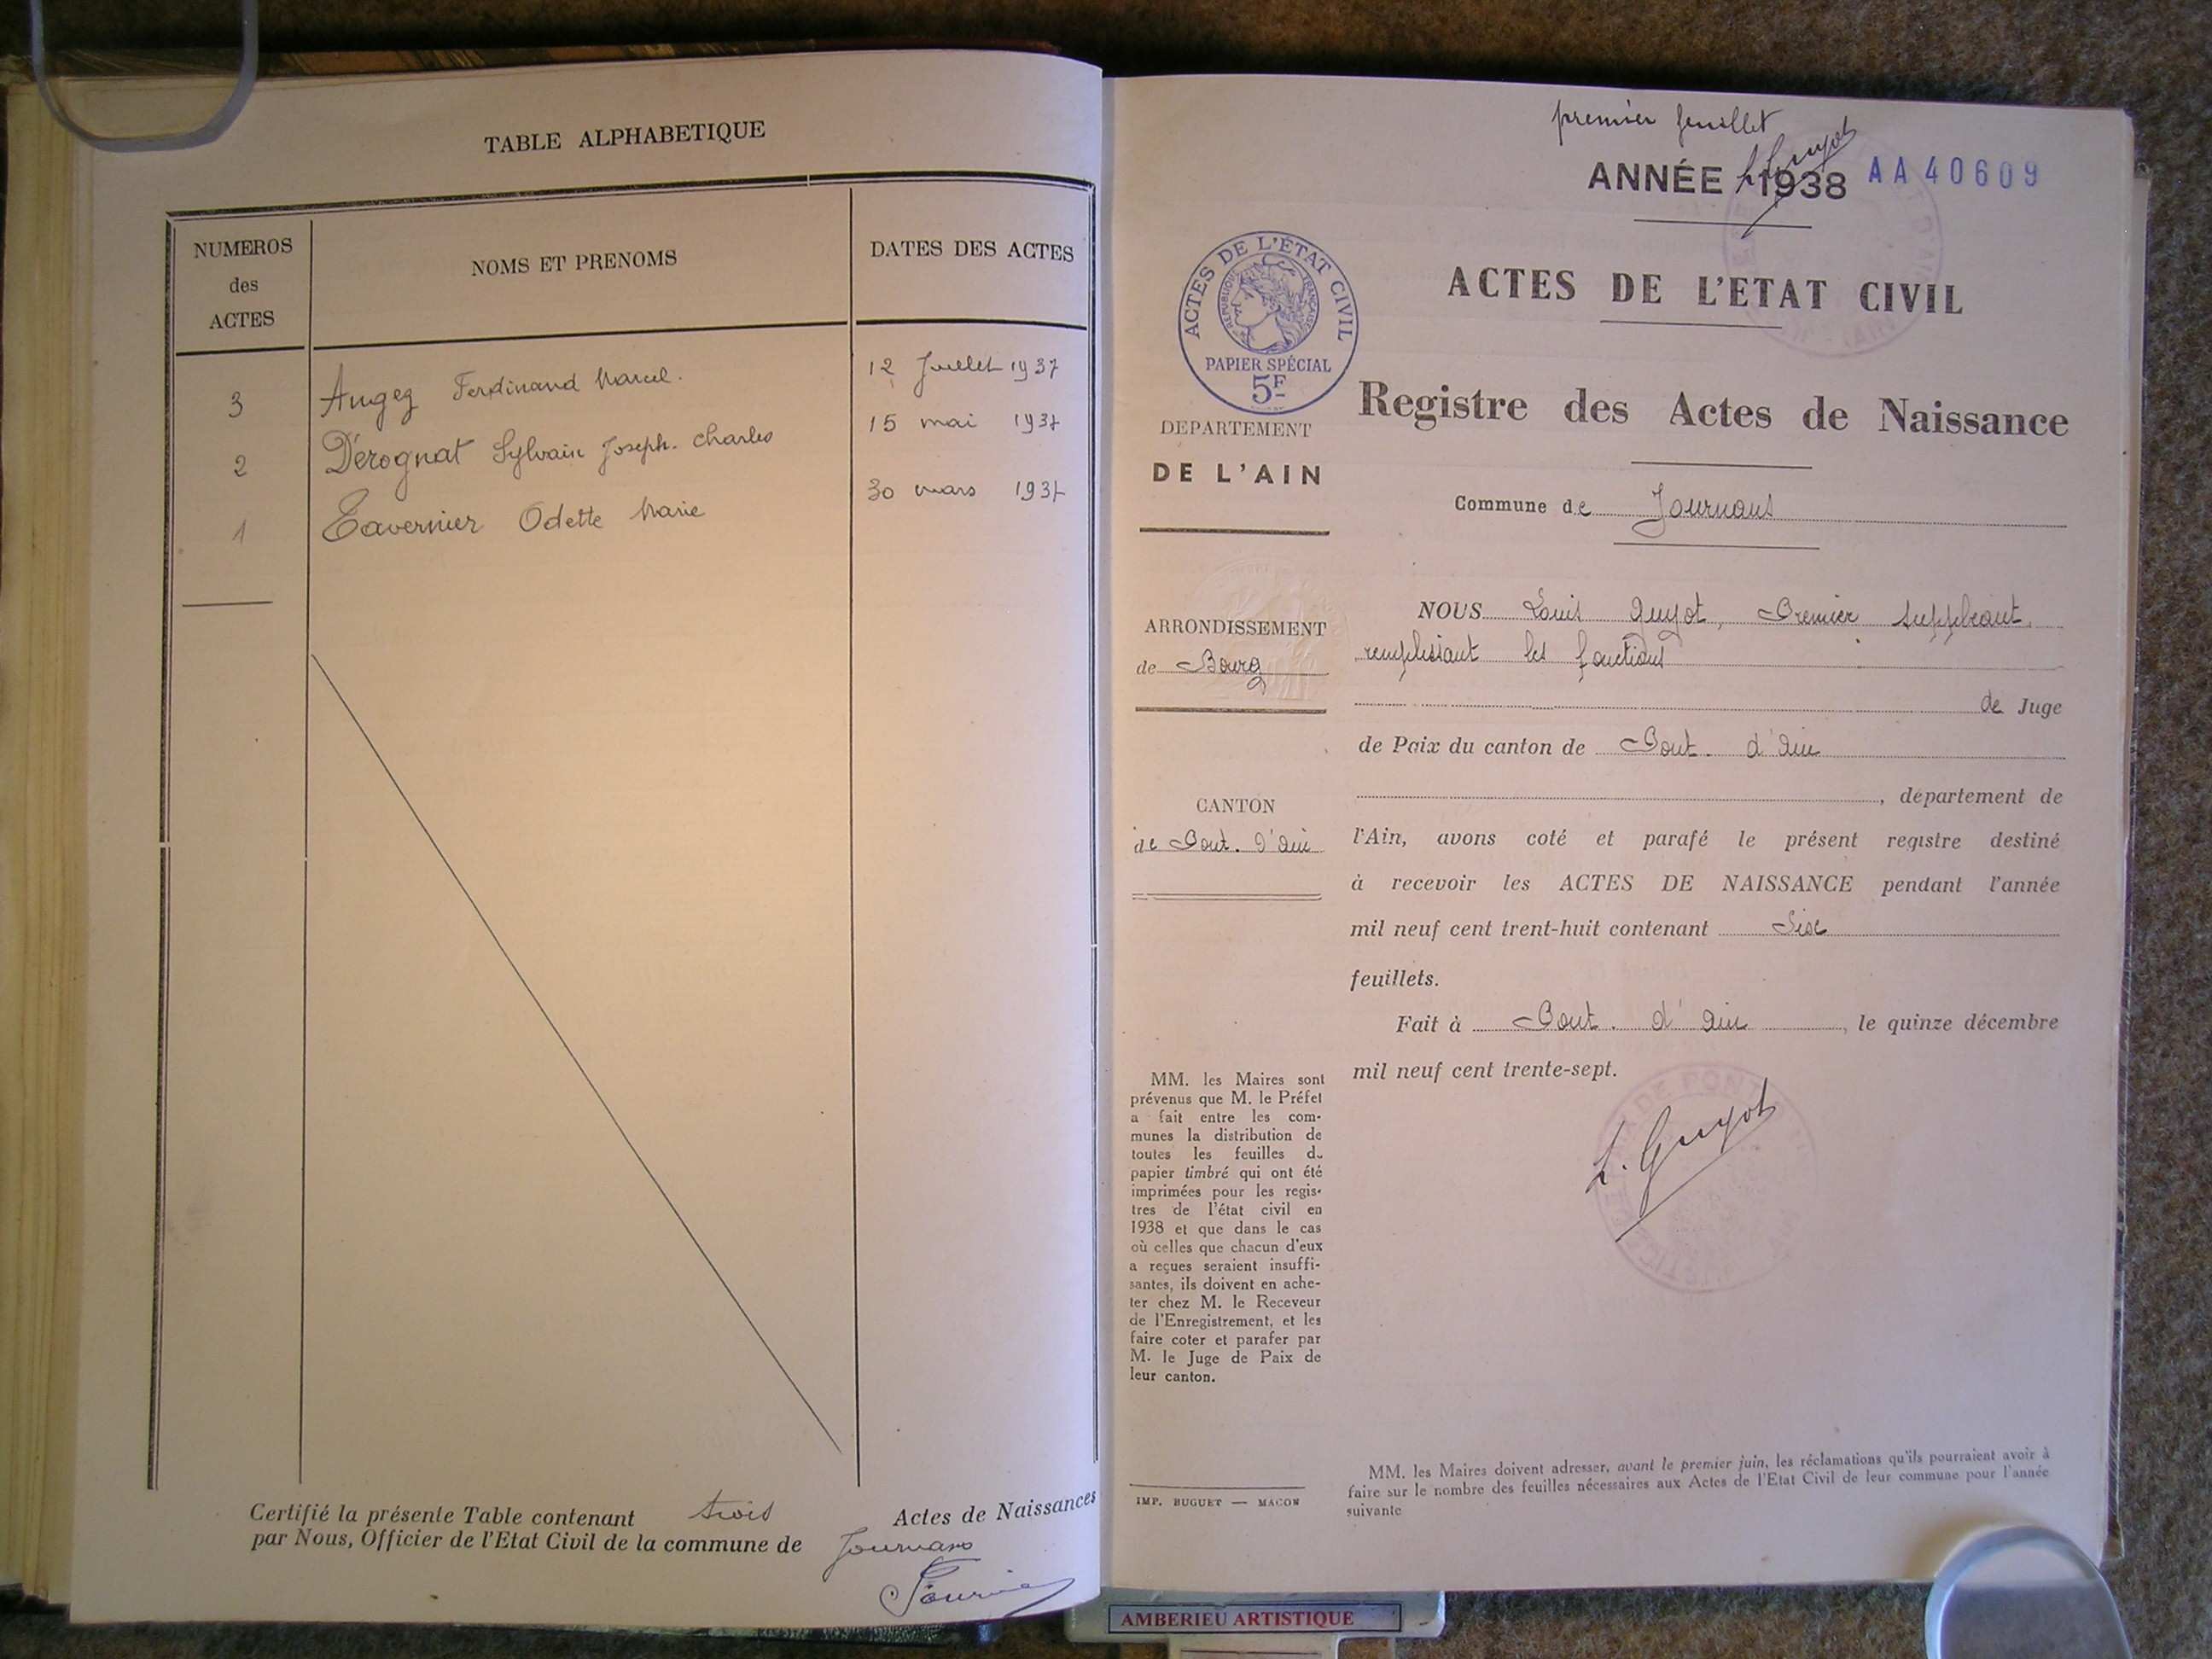 TABLE ALPHABETIQUE
NUMEROS
des
ACTES
NOMS ET PRENOMS
DATES DES ACTES
3 Augey Ferdinand Marcel. 12 Juillet 1937
2 Dérognat Sylvain Joseph-Charles 15 mai 1937
1 Tavernier Odette Marie 30 mars 1937
Certifié la présente Table contenant trois Actes de Naissances
par Nous, Officier de l'Etat Civil de la commune de Journans
premier feuillet
L Guyot
ANNÉE 1938 AA40609
ACTES DE L'ÉTAT CIVIL
RÉPUBLIQUE FRANÇAISE
PAPIER SPÉCIAL
5F
ACTES DE L'ETAT CIVIL
Registre des Actes de Naissance
DEPARTEMENT
DE L'AIN
Commune de Journans
ARRONDISSEMENT
de Bourg
CANTON
de Pont. d'Ain
NOUS Louis Guyot, Premier Suppléant,
remplissant les fonctions
de Juge
de Paix du canton de Pont. d'Ain
, département de
l'Ain, avons coté et parafé le présent registre destiné
à recevoir les ACTES DE NAISSANCE pendant l'année
mil neuf cent trent-huit contenant Six
feuillets.
Fait à Pont. d'Ain, le quinze décembre
mil neuf cent trente-sept.
L. Guyot
MM. les Maires sont
prévenus que M. le Préfet
a fait entre les com-
munes la distribution de
toutes les feuilles d
papier timbré qui ont été
imprimées pour les regis-
tres de l'état civil en
1938 et que dans le cas
où celles que chacun d'eux
a reçues seraient insuffi-
santes, ils doivent en ache-
ter chez M. le Receveur
de l'Enregistrement, et les
faire coter et parafer par
M. le Juge de Paix de
leur canton.
IMP. BUGUET — MACON
MM. les Maires doivent adresser, avant le premier juin, les réclamations qu'ils pourraient avoir à
faire sur le nombre des feuilles nécessaires aux Actes de l'Etat Civil de leur commune pour l'année
suivante
AMBERIEU ARTISTIQUE